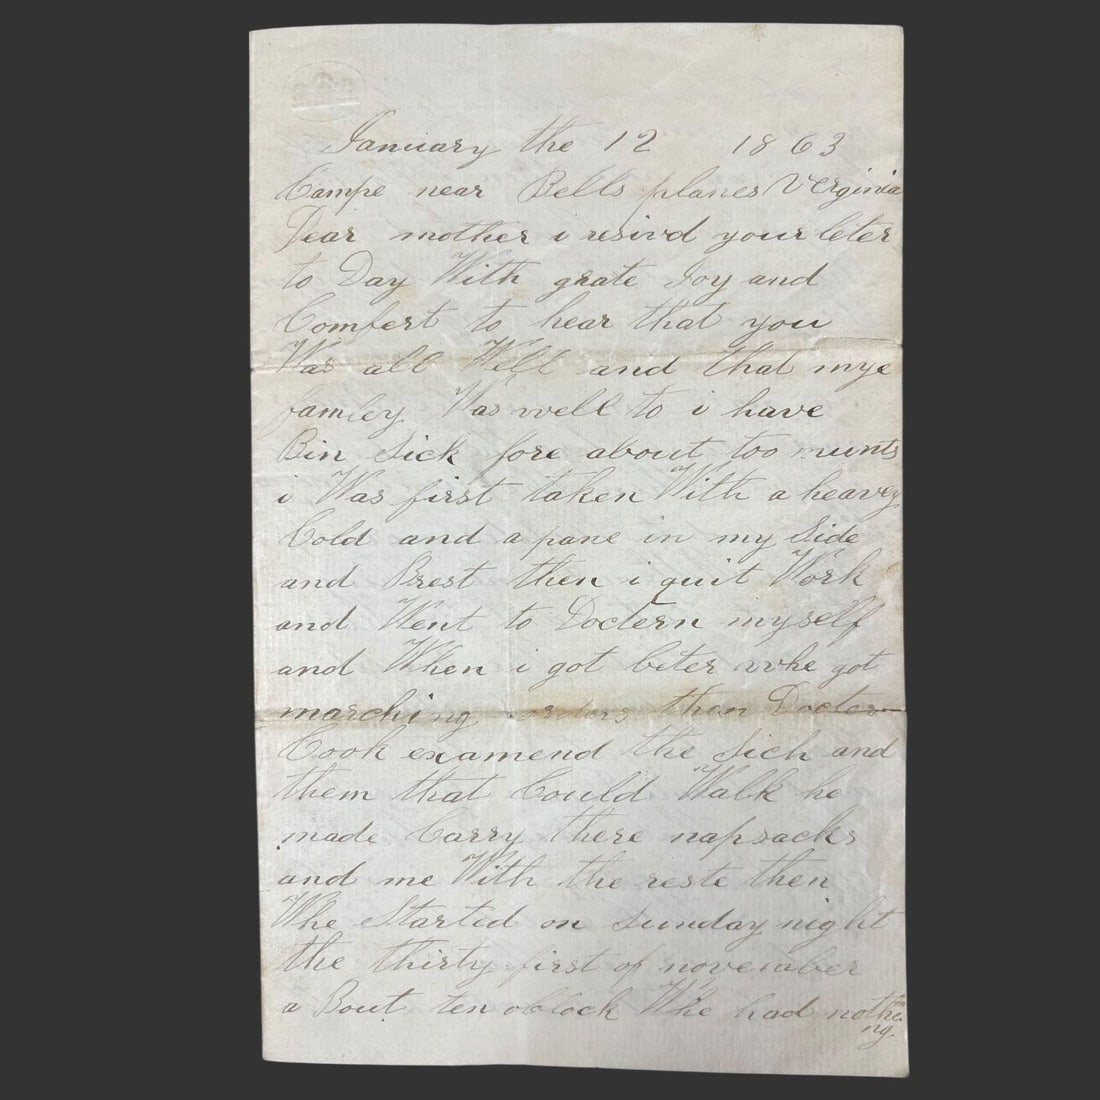 January the 12 1863
Campe near Bells planes Verginia
Dear mother i resivd your leter
to Day With grate Joy and
Comfert to hear that you
Was all Well and that mye
famley Was well to i have
Bin Sick fore about too munts
i Was first taken With a heavey
Cold and a pane in my Side
and Brest then i quit Work
and Went to Doctern myself
and When i got beter whe got
marching orders then Docter
Cook examend the Sich and
them that Could Walk he
made Carry there napsacks
and me With the reste then
Whe Started on Sunday night
the thirty first of november
a Bout ten oblock Whe had nothe
ng.